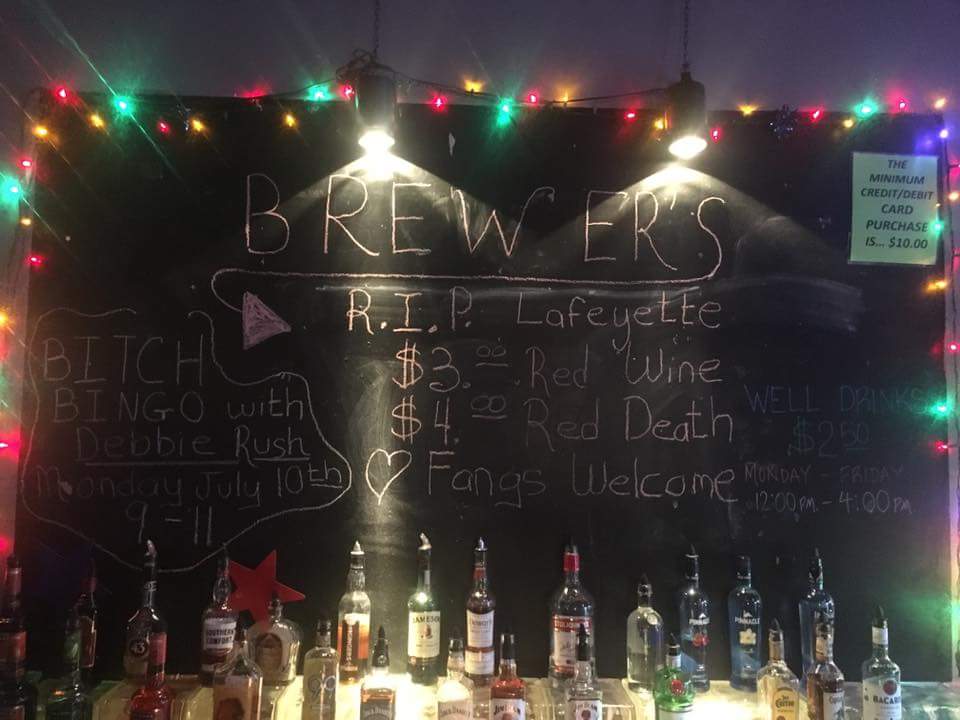 BREWER'S
THE
MINIMUM
CREDIT/DEBIT
CARD
PURCHASE
IS... $10.00
R.I.P. Lafeyette
$3.00 Red Wine
$4.00 Red Death
♡ Fangs Welcome
BITCH
BINGO with
Debbie Rush
Monday July 10th
9-11
WELL DRINKS
$2.50
MONDAY - FRIDAY
12:00PM. - 4:00PM.
43
SOUTHERN
COMFORT
JAMESON
PINNACLE
PINNACLE
JACK DANIEL'S
JIM BEAM
BACARDI